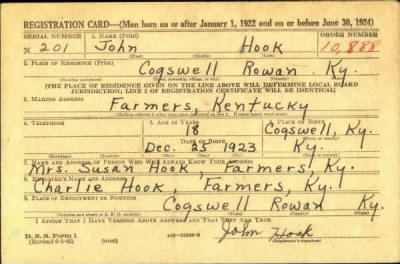 REGISTRATION CARD—(Men born on or after January 1, 1922 and on or before June 30, 1924)
SERIAL NUMBER 1. NAME (Print) ORDER NUMBER
N 201 John Hook 10,888
(First) (Middle) (Last)
2. PLACE OF RESIDENCE (Print)
Cogswell Rowan Ky.
(Number and street) (Town, township, village, or city) (County) (State)
[THE PLACE OF RESIDENCE GIVEN ON THE LINE ABOVE WILL DETERMINE LOCAL BOARD
JURISDICTION; LINE 2 OF REGISTRATION CERTIFICATE WILL BE IDENTICAL]
3. MAILING ADDRESS
Farmers, Kentucky
4. TELEPHONE 5. AGE IN YEARS 6. PLACE OF BIRTH
18 Cogswell, Ky.
DATE OF BIRTH
Dec. 25 1923 Ky.
(Exchange) (Number) (Mo.) (Day) (Yr.) (State or country)
7. NAME AND ADDRESS OF PERSON WHO WILL ALWAYS KNOW YOUR ADDRESS
Mrs. Susan Hook, Farmers, Ky.
8. EMPLOYER'S NAME AND ADDRESS
Charlie Hook, Farmers, Ky.
9. PLACE OF EMPLOYMENT OR BUSINESS
Cogswell Rowan Ky
(Number and street or R. F. D. number) (Town) (County) (State)
I AFFIRM THAT I HAVE VERIFIED ABOVE ANSWERS AND THAT THEY ARE TRUE.
John Hook
D. S. S. Form 1 (over) (Registrant's signature)